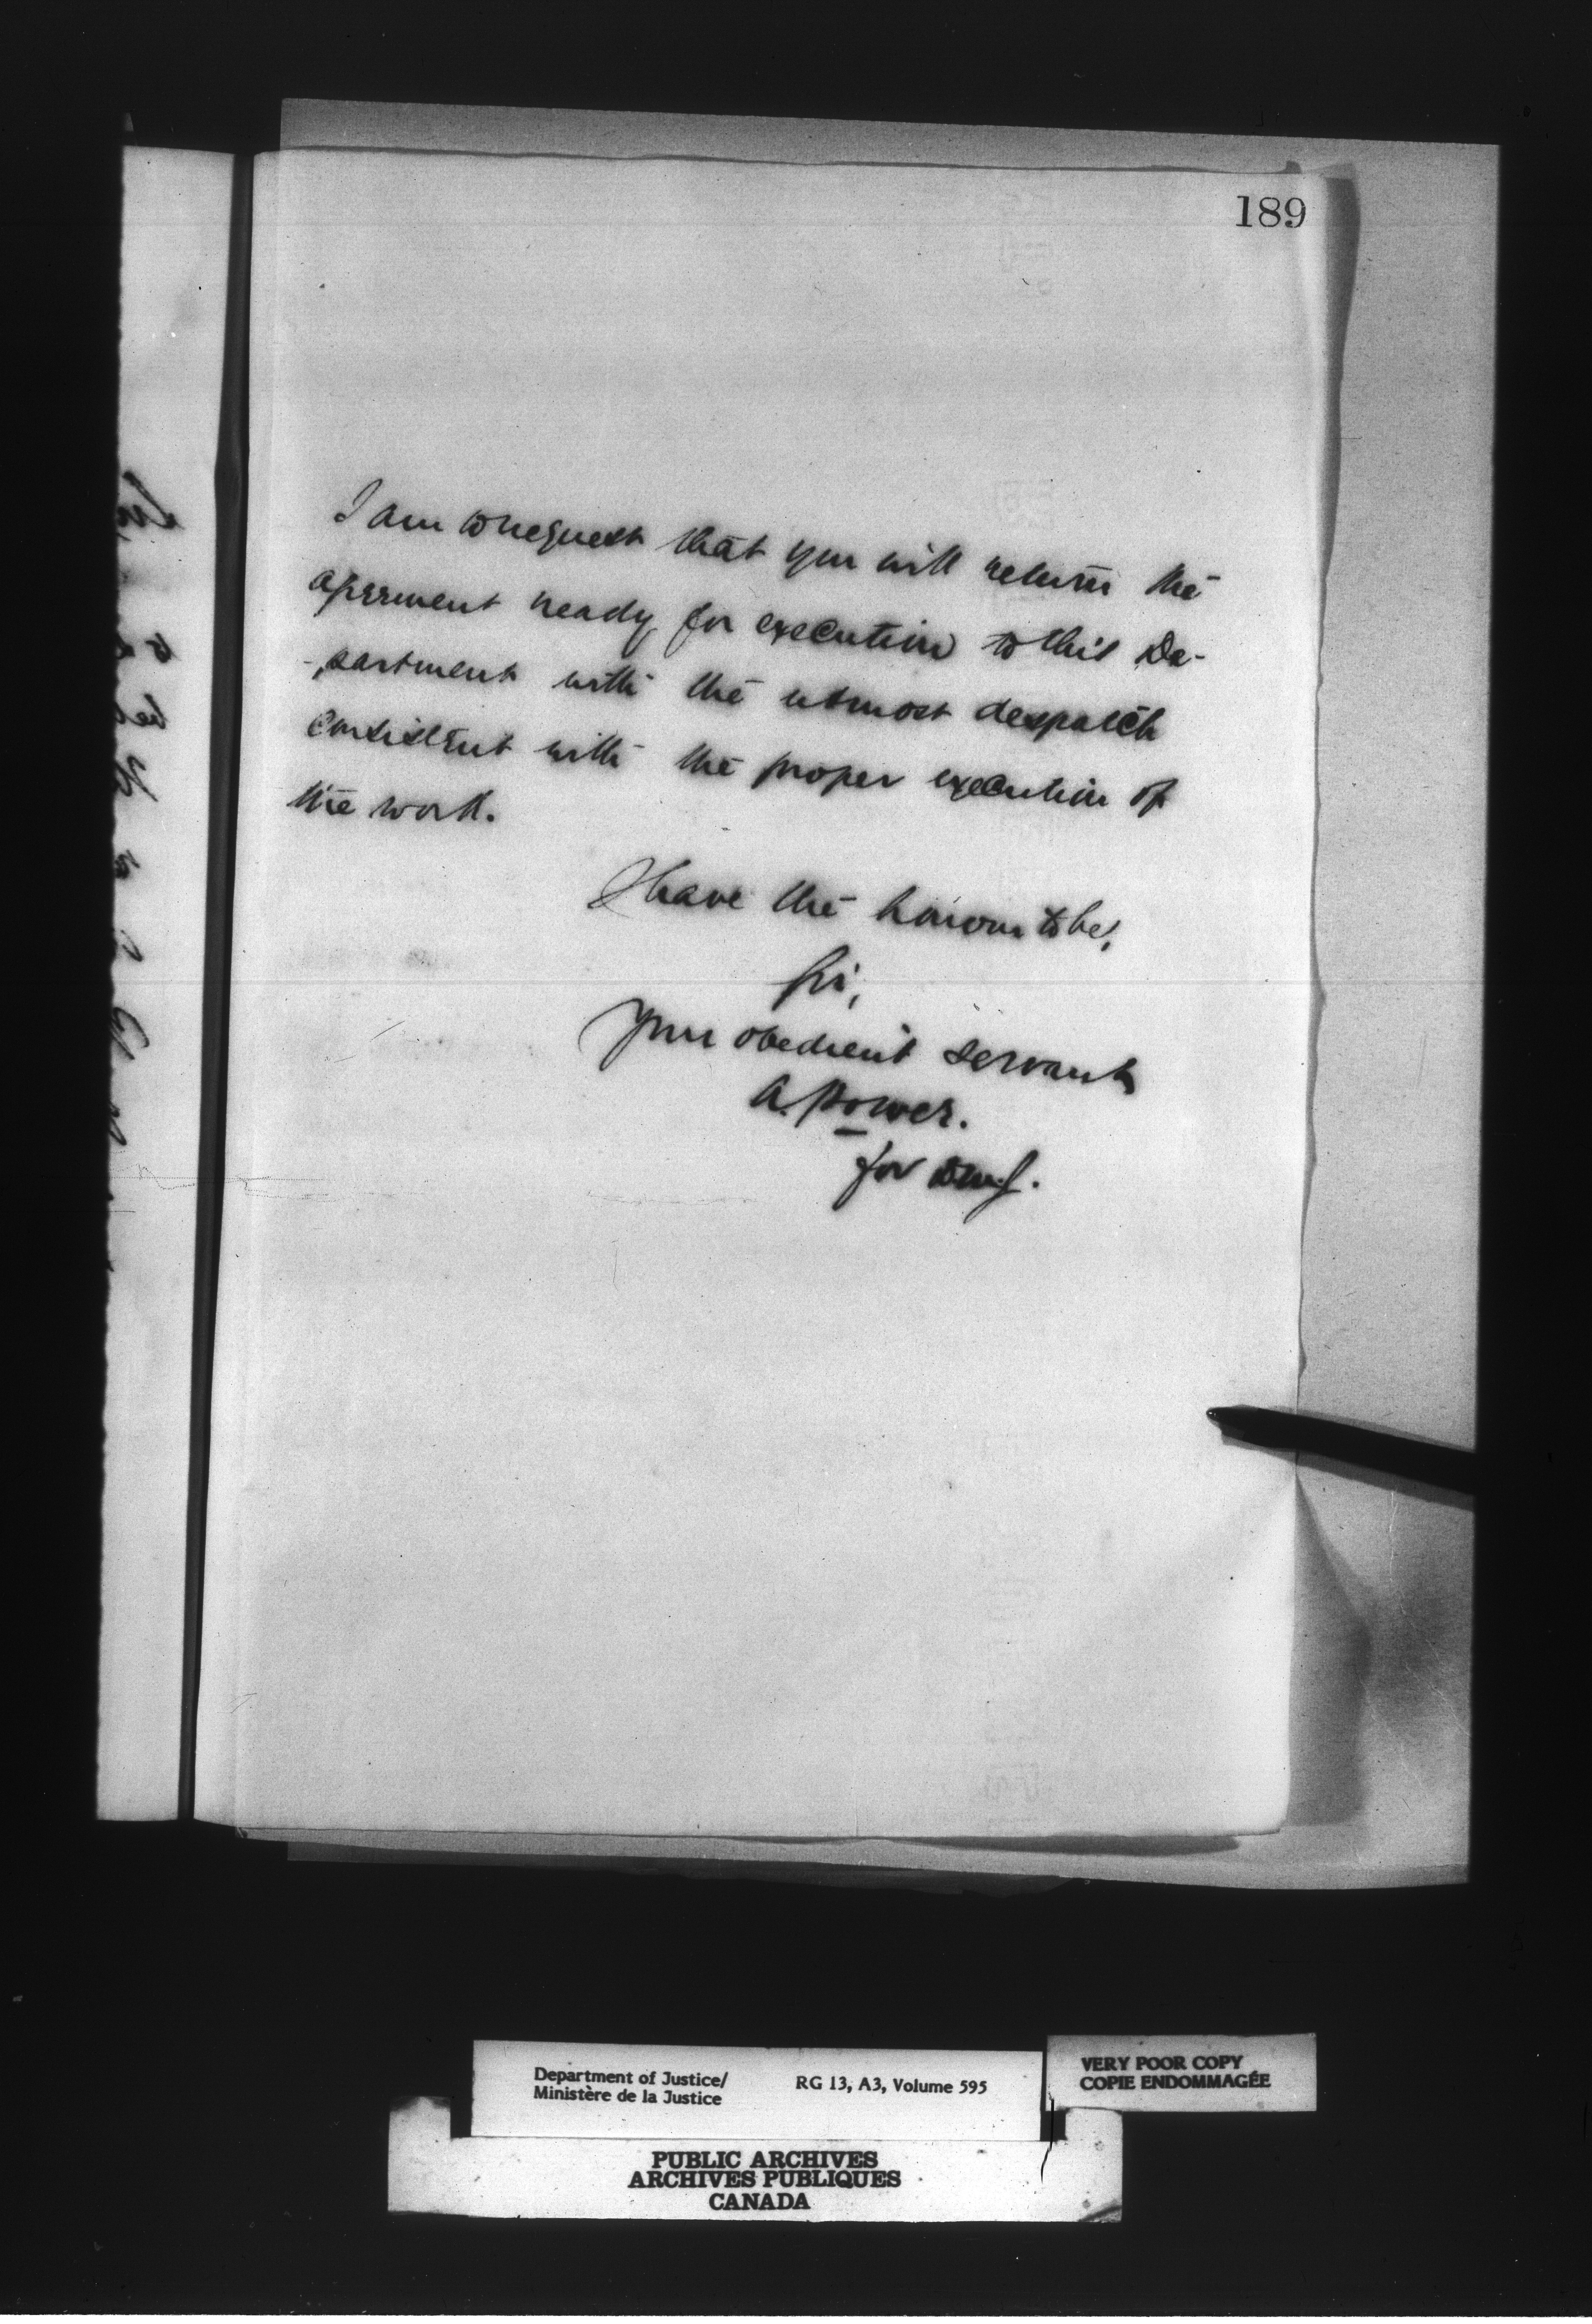 189
I am to request that you will return the
agreement ready for execution to this De-
-partment with the utmost despatch
consistent with the proper execution of
the work.
I have the honour to be,
Sir,
Your obedient servant
A. Power.
for D.M.J.
Department of Justice/
Ministère de la Justice
RG 13, A3, Volume 595
VERY POOR COPY
COPIE ENDOMMAGÉE
PUBLIC ARCHIVES
ARCHIVES PUBLIQUES
CANADA